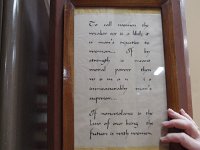 To call women the
weaker sex is a libel; it
is man's injustice to
woman... If by
strength is meant
moral power then
woman is
immeasurably man's
superior...
If nonviolence is the
law of our being the
future is with women.